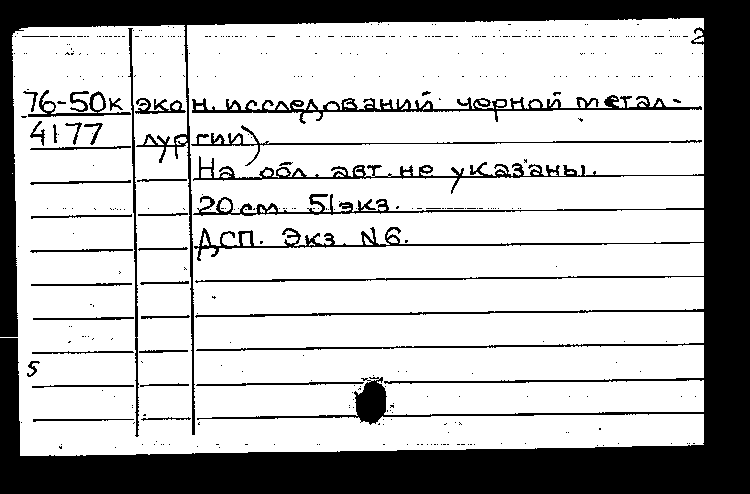 2
76-50к экон. исследований черной метал-
4177 лургии)
На обл. авт. не указаны.
20 см. 51 экз.
ДСП. Экз. N6.
5